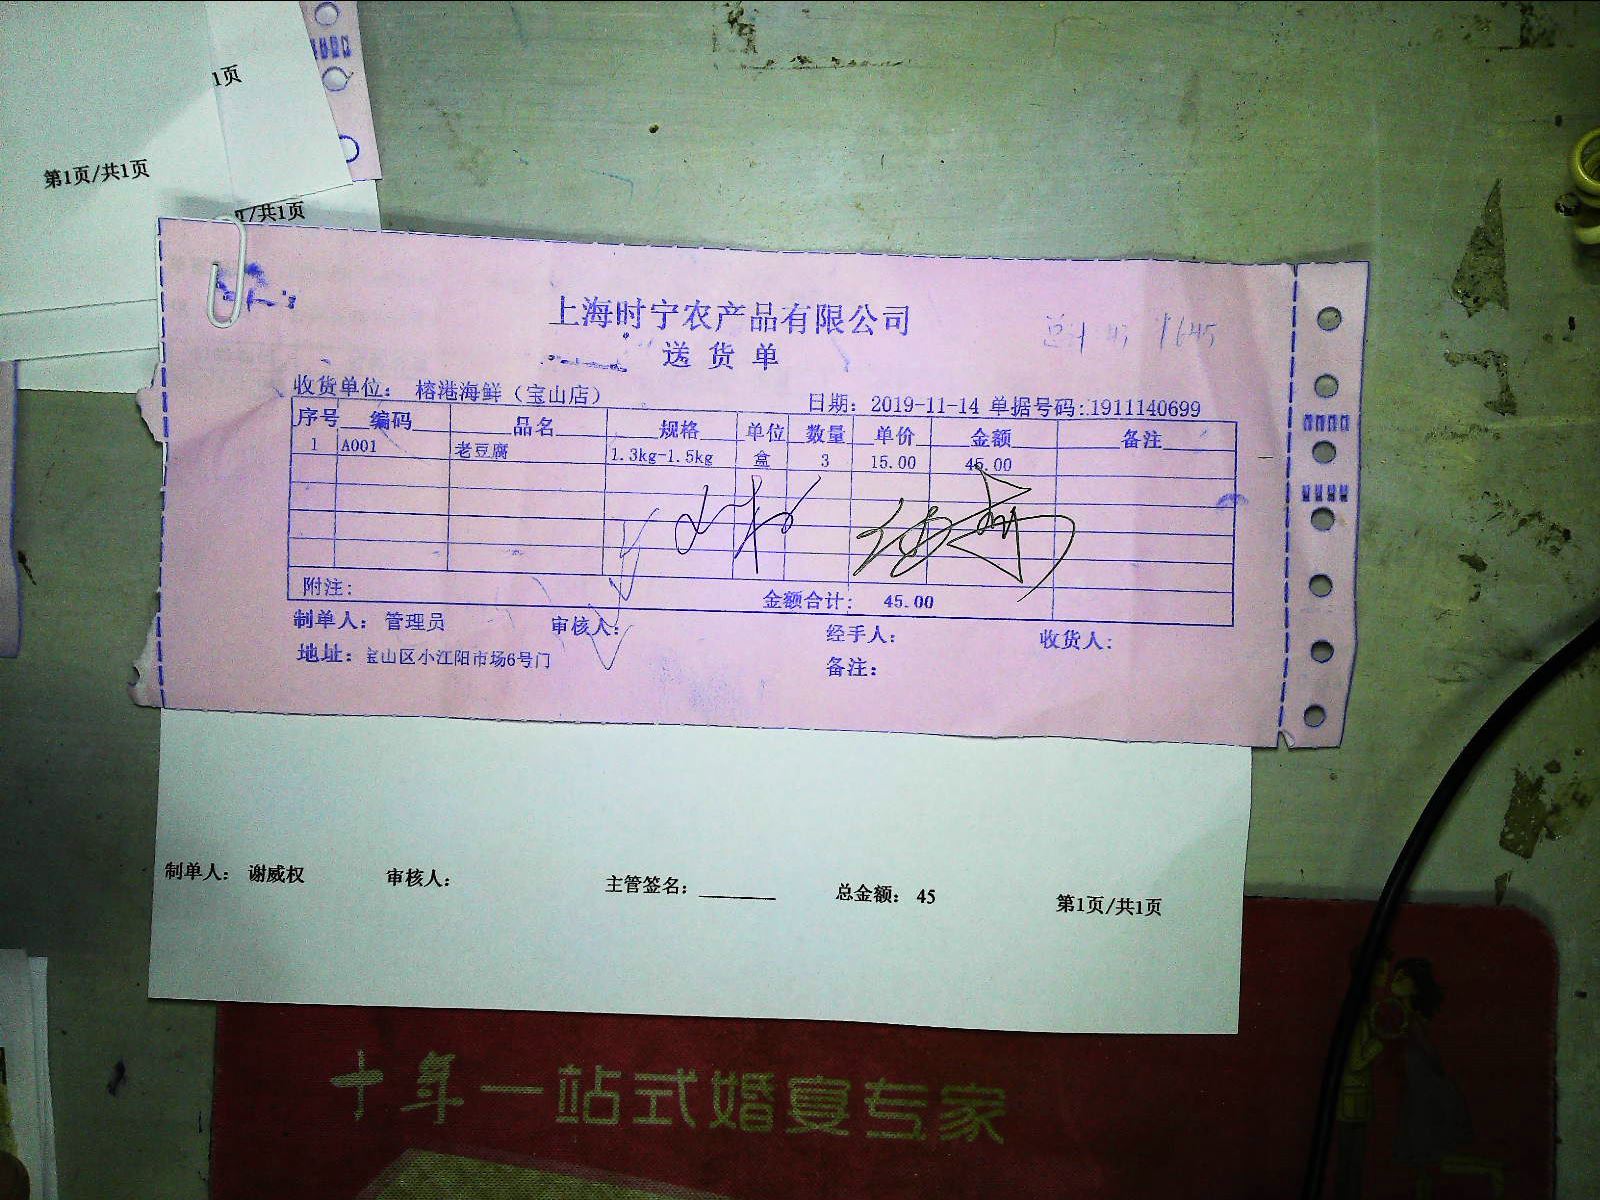 1页
第1页/共1页
/共1页
上海时宁农产品有限公司
送货单
总计 1645
收货单位： 榕港海鲜（宝山店）
日期： 2019-11-14 单据号码：1911140699
序号 编码 品名 规格 单位 数量 单价 金额 备注
1 A001 老豆腐 1.3kg-1.5kg 盒 3 15.00 45.00
附注： 金额合计： 45.00
制单人： 管理员 审核人： 经手人： 收货人：
地址：宝山区小江阳市场6号门 备注：
制单人： 谢威权 审核人： 主管签名： 总金额： 45 第1页/共1页
十年一站式婚宴专家